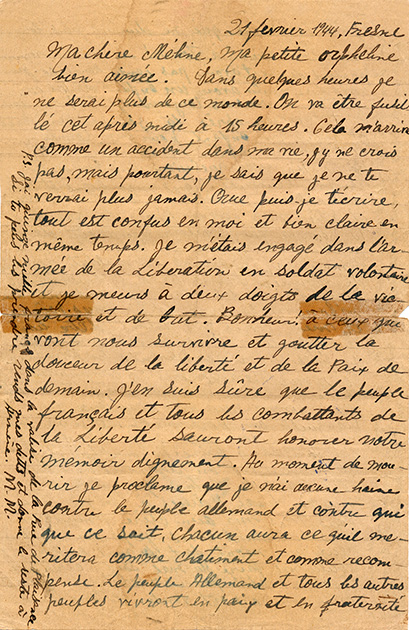 21 février 1944, Fresne
Ma chère Méline, ma petite orpheline
bien aimée. Dans quelques heures je
ne serai plus de ce monde. On va être fusil
lé cet après midi à 15 heures. Cela m'arrive
comme un accident dans ma vie, j'y ne crois
pas, mais pourtant, je sais que je ne te
verrai plus jamais. Que puis-je t'écrire,
tout est confus en moi et bien claire en
même temps. Je m'étais engagé dans l'ar
mée de la Libération en soldat volontaire
et je meurs à deux doigts de la vic
toire et de but. Bonheur! à ceux qui
vont nous survivre et goutter la
douceur de la liberté et de la Paix de
demain. J'en suis sûre que le peuple
français et tous les combattants de
la Liberté sauront honorer notre
mémoir dignement. Au moment de mou
rir je proclame que je n'ai aucune haine
contre le peuple allemand et contre qui
que ce soit, chacun aura ce qu'il mé
ritera comme chatiment et comme recom
pense. Le peuple Allemand et tous les autres
peuples vivront en paix et en fraternité
P.S. J'ai quinze mille francs dans la valise de la rue de Plaisance
si tu peus les prendre rends mes dettes et donne le reste à
Armène. M. M.